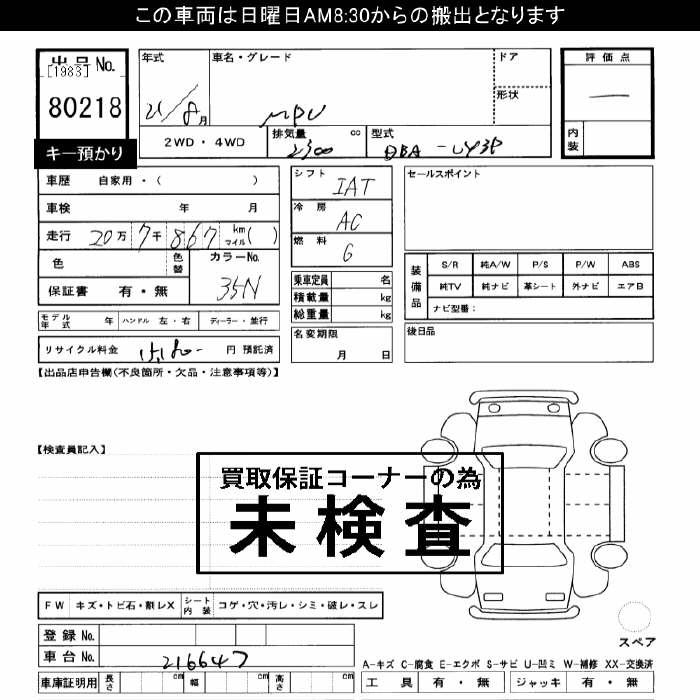 この車両は日曜日AM8:30からの搬出となります
出品 No.
[1983]
80218
キー預かり
年式
21/8月
車名・グレード
MPV
ドア
形状
2WD・4WD
排気量 cc
2300
型式
DBA-LY3P
評価点
―
内装
車歴 自家用・( )
車検 年 月
走行 20万 7千 867 km マイル( )
色
色替
カラーNo.
35N
保証書 有・無
シフト IAT
冷房 AC
燃料 G
乗車定員 名
積載量 kg
総重量 kg
名変期限
月 日
セールスポイント
装備品
S/R 純A/W P/S P/W ABS
純TV 純ナビ 革シート 外ナビ エアB
ナビ型番:
後日品
モデル年式 年 ハンドル 左・右 ディーラー・並行
リサイクル料金 円 預託済
【出品店申告欄(不良箇所・欠品・注意事項等)】
【検査員記入】
買取保証コーナーの為
未検査
FW キズ・トビ石・割レX シート内装 コゲ・穴・汚レ・シミ・破レ・スレ
登録 No.
車台 No. 216647
車庫証明用 長さ cm 幅 cm 高さ cm
スペア
A-キズ C-腐食 E-エクボ S-サビ U-凹ミ W-補修 XX-交換済
工具 有・無 ジャッキ 有・無